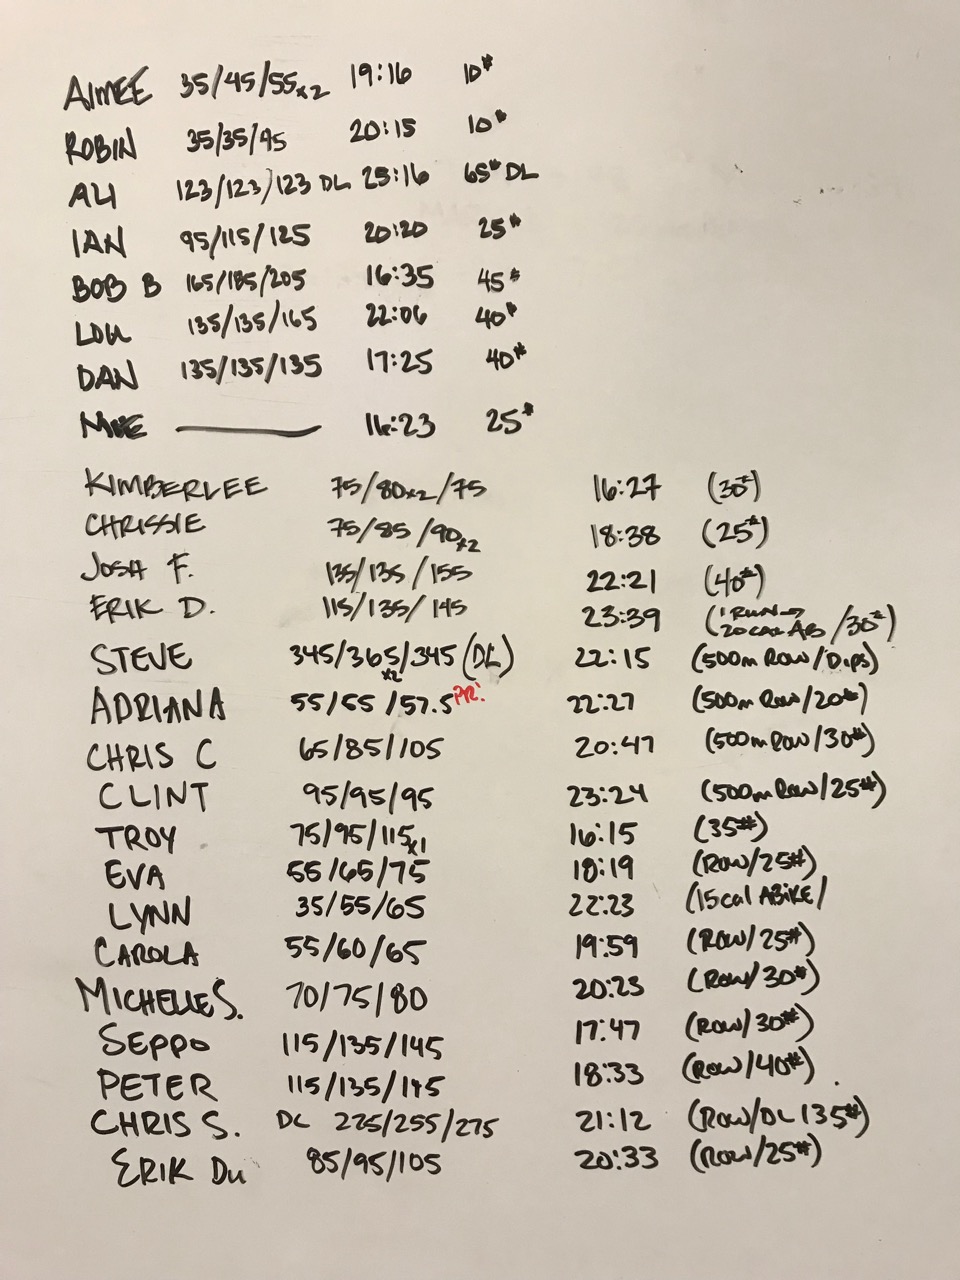 AIMEE 35/45/55x2 19:16 10#
ROBIN 35/35/45 20:15 10#
ALI 123/123/123 DL 25:16 65# DL
IAN 95/115/125 20:20 25#
BOB B 165/185/205 16:35 45#
LOU 135/135/165 22:06 40#
DAN 135/135/135 17:25 40#
16:23 25#
KIMBERLEE 75/80x2/75 16:27 (30#)
CHRISSIE 75/85/90x2 18:38 (25#)
JOSH F. 135/135/155 22:21 (40#)
ERIK D. 115/135/145 23:39 (1 RUN→ 20 CAL AB/30#)
STEVE 345/365x2/345 (DL) 22:15 (500m ROW/DIPS)
ADRIANA 55/55/57.5 PR! 22:27 (500m ROW/20#)
CHRIS C 65/85/105 20:47 (500m ROW/30#)
CLINT 95/95/95 23:24 (500m ROW/25#)
TROY 75/95/115x1 16:15 (35#)
EVA 55/65/75 18:19 (ROW/25#)
LYNN 35/55/65 22:23 (15cal ABIKE/
CAROLA 55/60/65 19:59 (ROW/25#)
MICHELLE S. 70/75/80 20:23 (ROW/30#)
SEPPO 115/135/145 17:47 (ROW/30#)
PETER 115/135/145 18:33 (ROW/40#)
CHRIS S. DL 225/255/275 21:12 (ROW/DL 135#)
ERIK Du 85/95/105 20:33 (ROW/25#)